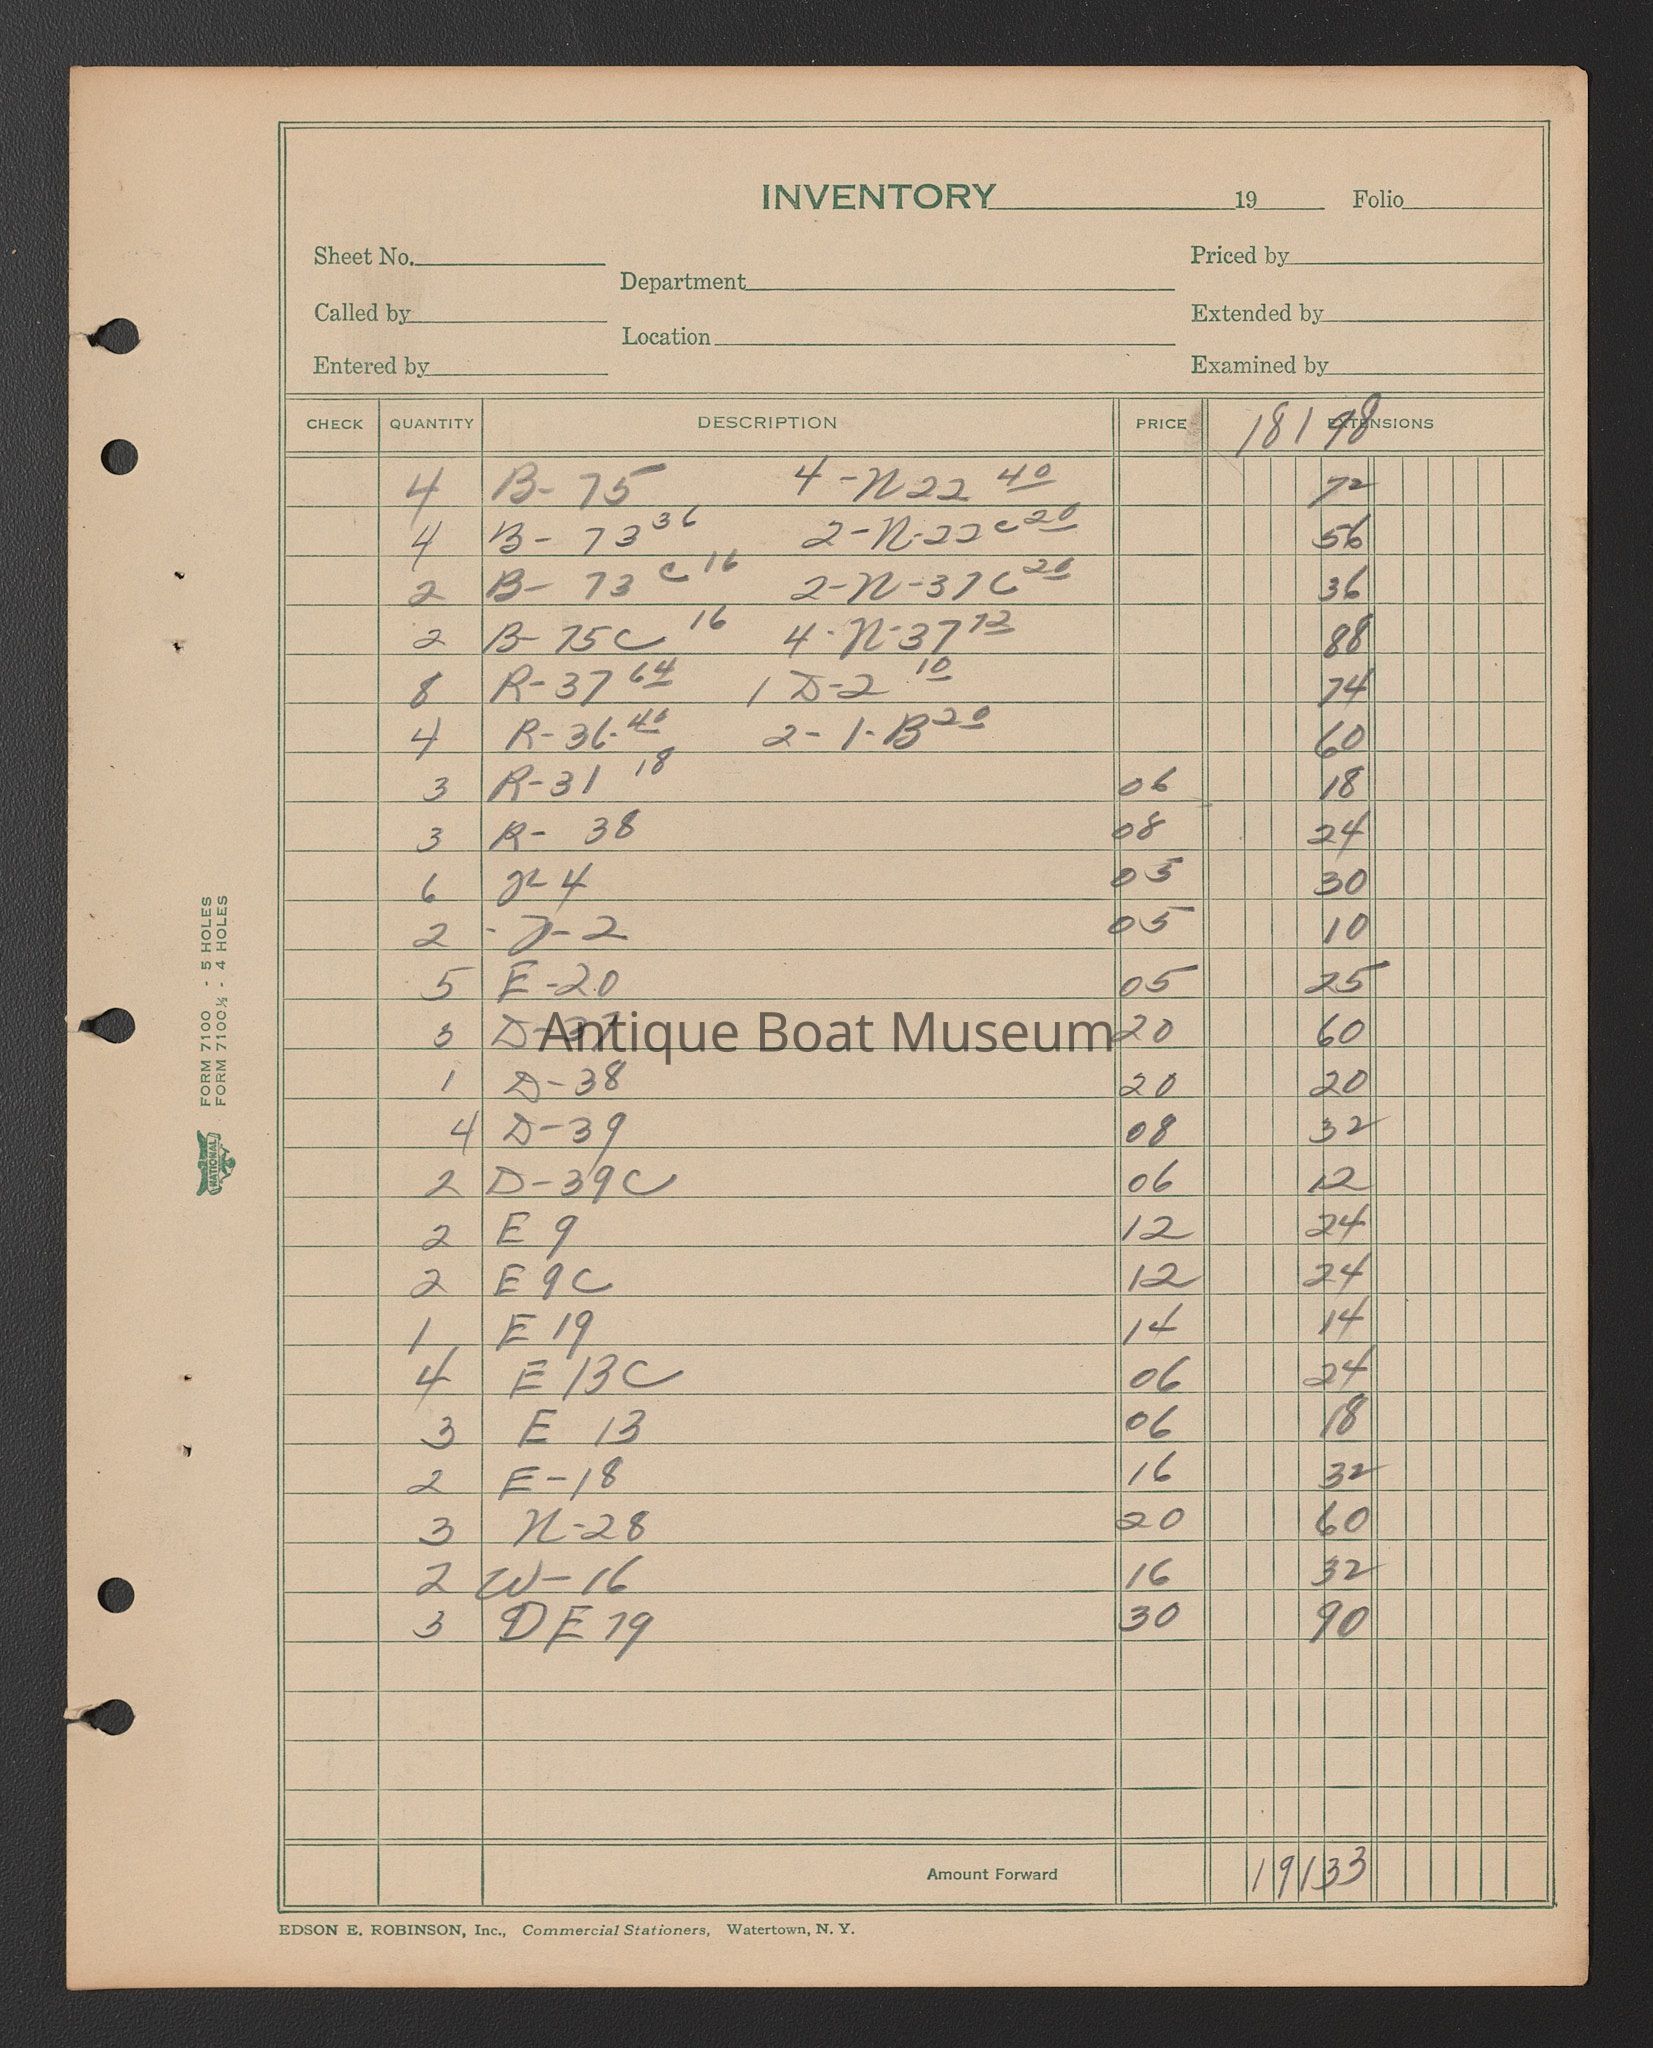 INVENTORY 19 Folio
Sheet No. Priced by
Department
Called by Extended by
Location
Entered by Examined by
CHECK QUANTITY DESCRIPTION PRICE EXTENSIONS
181 98
4 B- 75 4-N 22 40 72
4 B- 73 36 2-N-22 C 20 56
2 B- 73 C 16 2-N-37C 20 36
2 B- 75C 16 4-N-37 72 88
8 R-37 64 1 D-2 10 74
4 R-36- 40 2-1-B 20 60
3 R-31 18 06 18
3 R- 38 08 24
6 4 05 30
2 2 05 10
5 E-20 05 25
3 D-37 20 60
1 D-38 20 20
4 D-39 08 32
2 D-39C 06 12
2 E 9 12 24
2 E 9C 12 24
1 E 19 14 14
4 E 13C 06 24
3 E 13 06 18
2 E-18 16 32
3 N-28 20 60
2 W-16 16 32
3 DE 79 30 90
Amount Forward 191 33
EDSON E. ROBINSON, Inc., Commercial Stationers, Watertown, N. Y.
FORM 7100 - 5 HOLES
FORM 7100½ - 4 HOLES
NATIONAL
Antique Boat Museum